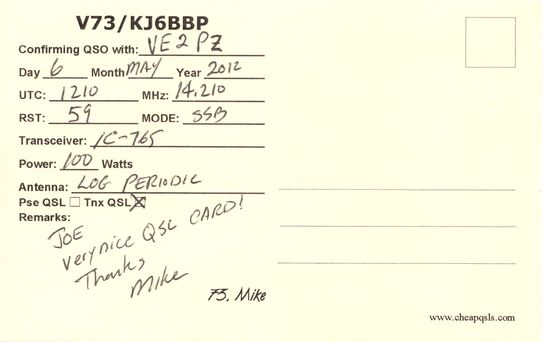 V73/KJ6BBP
Confirming QSO with: VE2PZ
Day 6 Month MAY Year 2012
UTC: 1210 MHz: 14.210
RST: 59 MODE: SSB
Transceiver: IC-765
Power: 100 Watts
Antenna: LOG PERIODIC
Pse QSL ☐ Tnx QSL ☒
Remarks:
JOE
very nice QSL CARD!
Thanks
Mike
73, Mike
www.cheapqsls.com